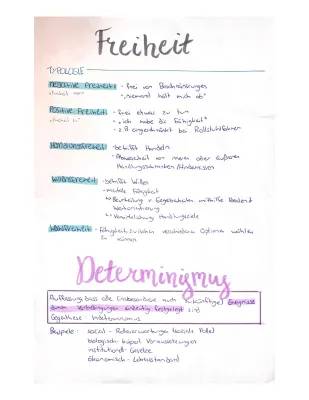 Freiheit
TYPOLOGIE
negative Freiheit: - frei von Beschränkungen
"Freiheit von" - "niemand hält mich ab"
Positive Freiheit: - frei etwas zu tun
"Freiheit zu" - "ich habe die Fähigkeit"
- z.B. eingeschränkt bei Rollstuhlfahrer
Handlungsfreiheit - betrifft Handeln
- Abwesenheit von inneren oder äußeren
Willensfreiheit - betrifft Willen
- mentale Fähigkeit
Wahlfreiheit - Fähigkeit zwischen verschiedenen Optionen wählen
zu können
Determinismus
Auffassung, dass alle (insbesondere auch zukünftige) Ereignisse
durch Vorbedingungen eindeutig festgelegt sind
Gegenthese: Indeterminismus
Beispiele: sozial - Rollenerwartungen (soziale Rolle)
biologisch - körperl. Voraussetzungen
institutionell - Gesetze
ökonomisch - Lebensstandard